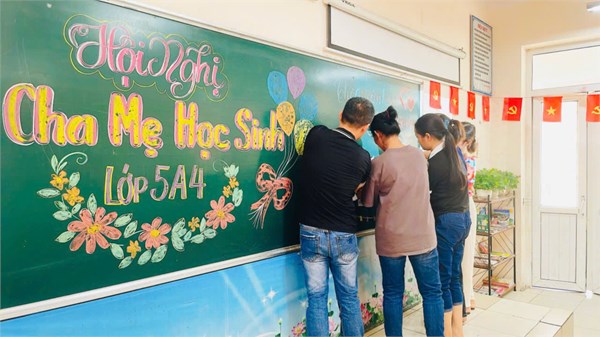 Hội Nghị
Cha Mẹ Học Sinh
Lớp 5A4